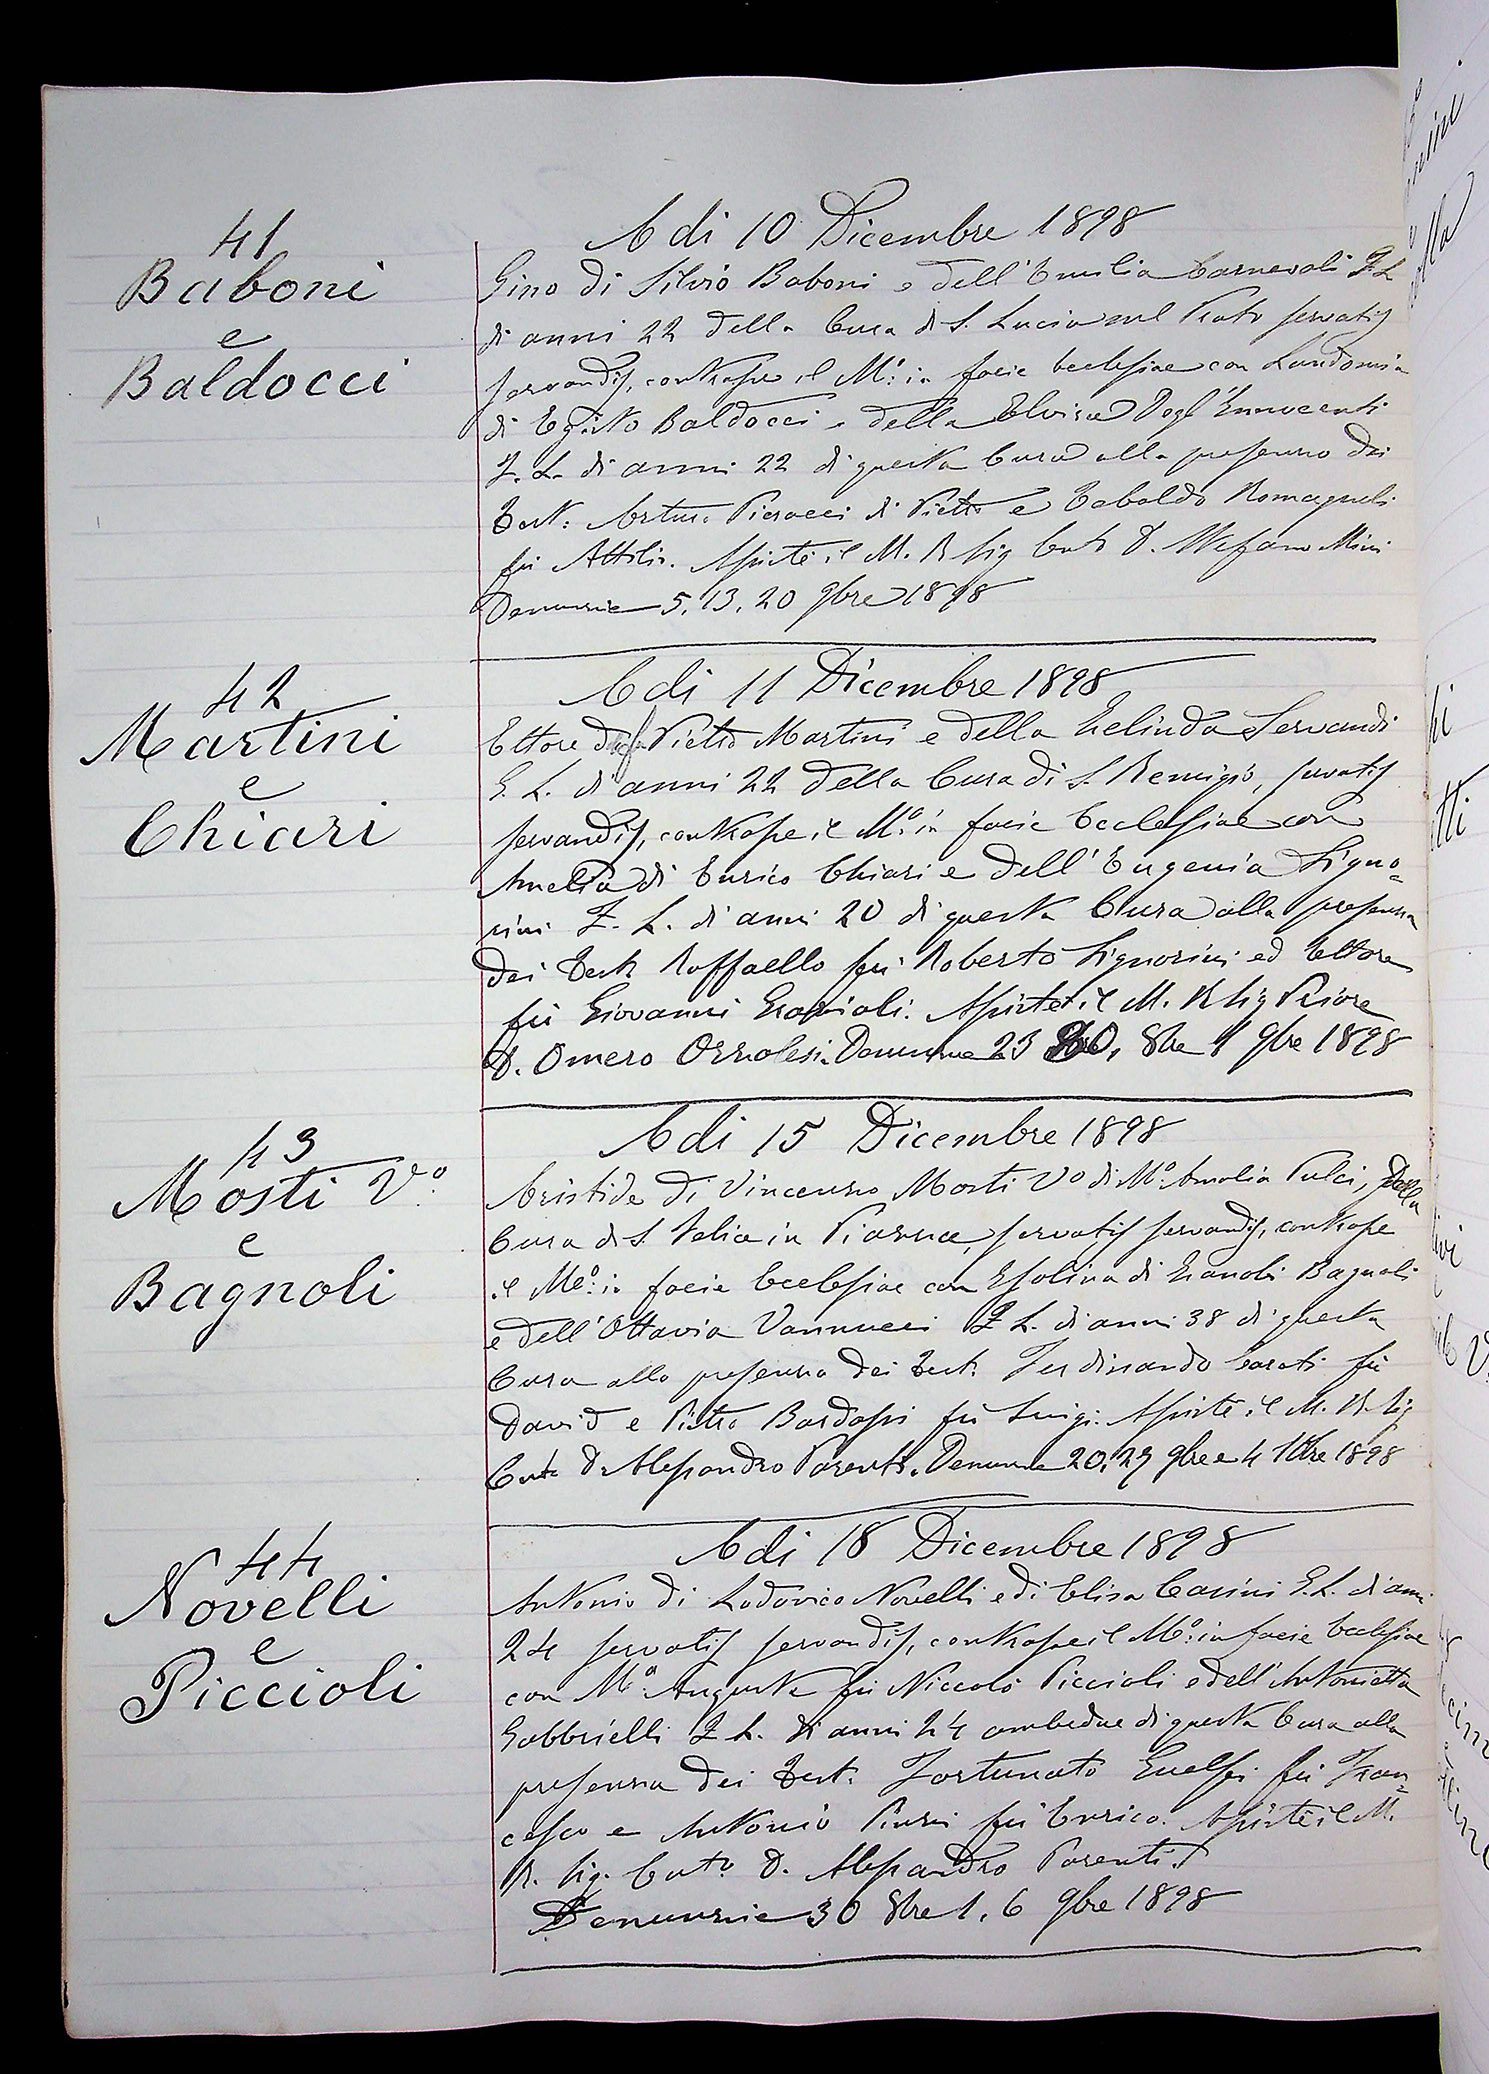 41
Baboni
e
Baldocci
A di 10 Dicembre 1898
Gino di Silvio Baboni e dell'Emilia Carnevali G. L.
di anni 22 della Cura di S. Lucia sul Prato servatis
servandis, contrasse il M.º in facie Ecclesiae con Laudomia
di Egisto Baldocci e della Elvira Degl'Innocenti
F. L. di anni 22 di questa Cura alla presenza dei
Test: Arturo Pieracci di Pietro e Tebaldo Romagnoli
fu Attilio. Assistè il M. R. Sig Curto D. Stefano Mini
Denunzie 5, 13, 20 9bre 1898
42
Martini
e
Chiari
A di 11 Dicembre 1898
Ettore di Pietro Martini e della Zelinda Servandi
G. L. di anni 22 della Cura di S. Remigio, servatis
servandis, contrasse il M.º in facie Ecclesiae con
Amelia di Enrico Chiari e dell'Eugenia Signo=
rini F. L. di anni 20 di questa Cura alla presenza
dei Test. Raffaello fu Roberto Signorini ed Ettore
fu Giovanni. Assistè il M. R Sig Priore
D. Omero Denunzie 23 30, 8bre 1 9bre 1898
43
Mosti V.º
e
Bagnoli
A di 15 Dicembre 1898
Aristide di Vincenzo Mosti Vº di Mª Amalia Pulci, della
Cura di S. Felice in Piazza, servatis servandis, contrasse
il Mº: in facie Ecclesiae con Esolina di Zanobi Bagnoli
e dell'Ottavia Vannucci F. L. di anni 38 di questa
Cura alla presenza dei Test. Ferdinando Carati fu
David e Pietro Bardassi fu Luigi. Assistè il M. R. Sig
Curto D. Alessandro Parenti. Denunzie 20, 27 9bre e 4 Xbre 1898
44
Novelli
e
Piccioli
A di 18 Dicembre 1898
Antonio di Lodovico Novelli e di Elisa Casini G. L. di anni
24 servatis servandis, contrasse il Mº: in facie Ecclesiae
con Mª Augusta fu Niccolò Piccioli e dell'Antonietta
Gabbrielli F. L. di anni 24 ambedue di questa Cura alla
presenza dei Test. Fortunato Guelfi fu Fran=
cesco e Antonio fu Enrico. Assistè il M.
R. Sig. Curto D. Alessandro Parenti.
Denunzie 30 8bre 1, 6 9bre 1898